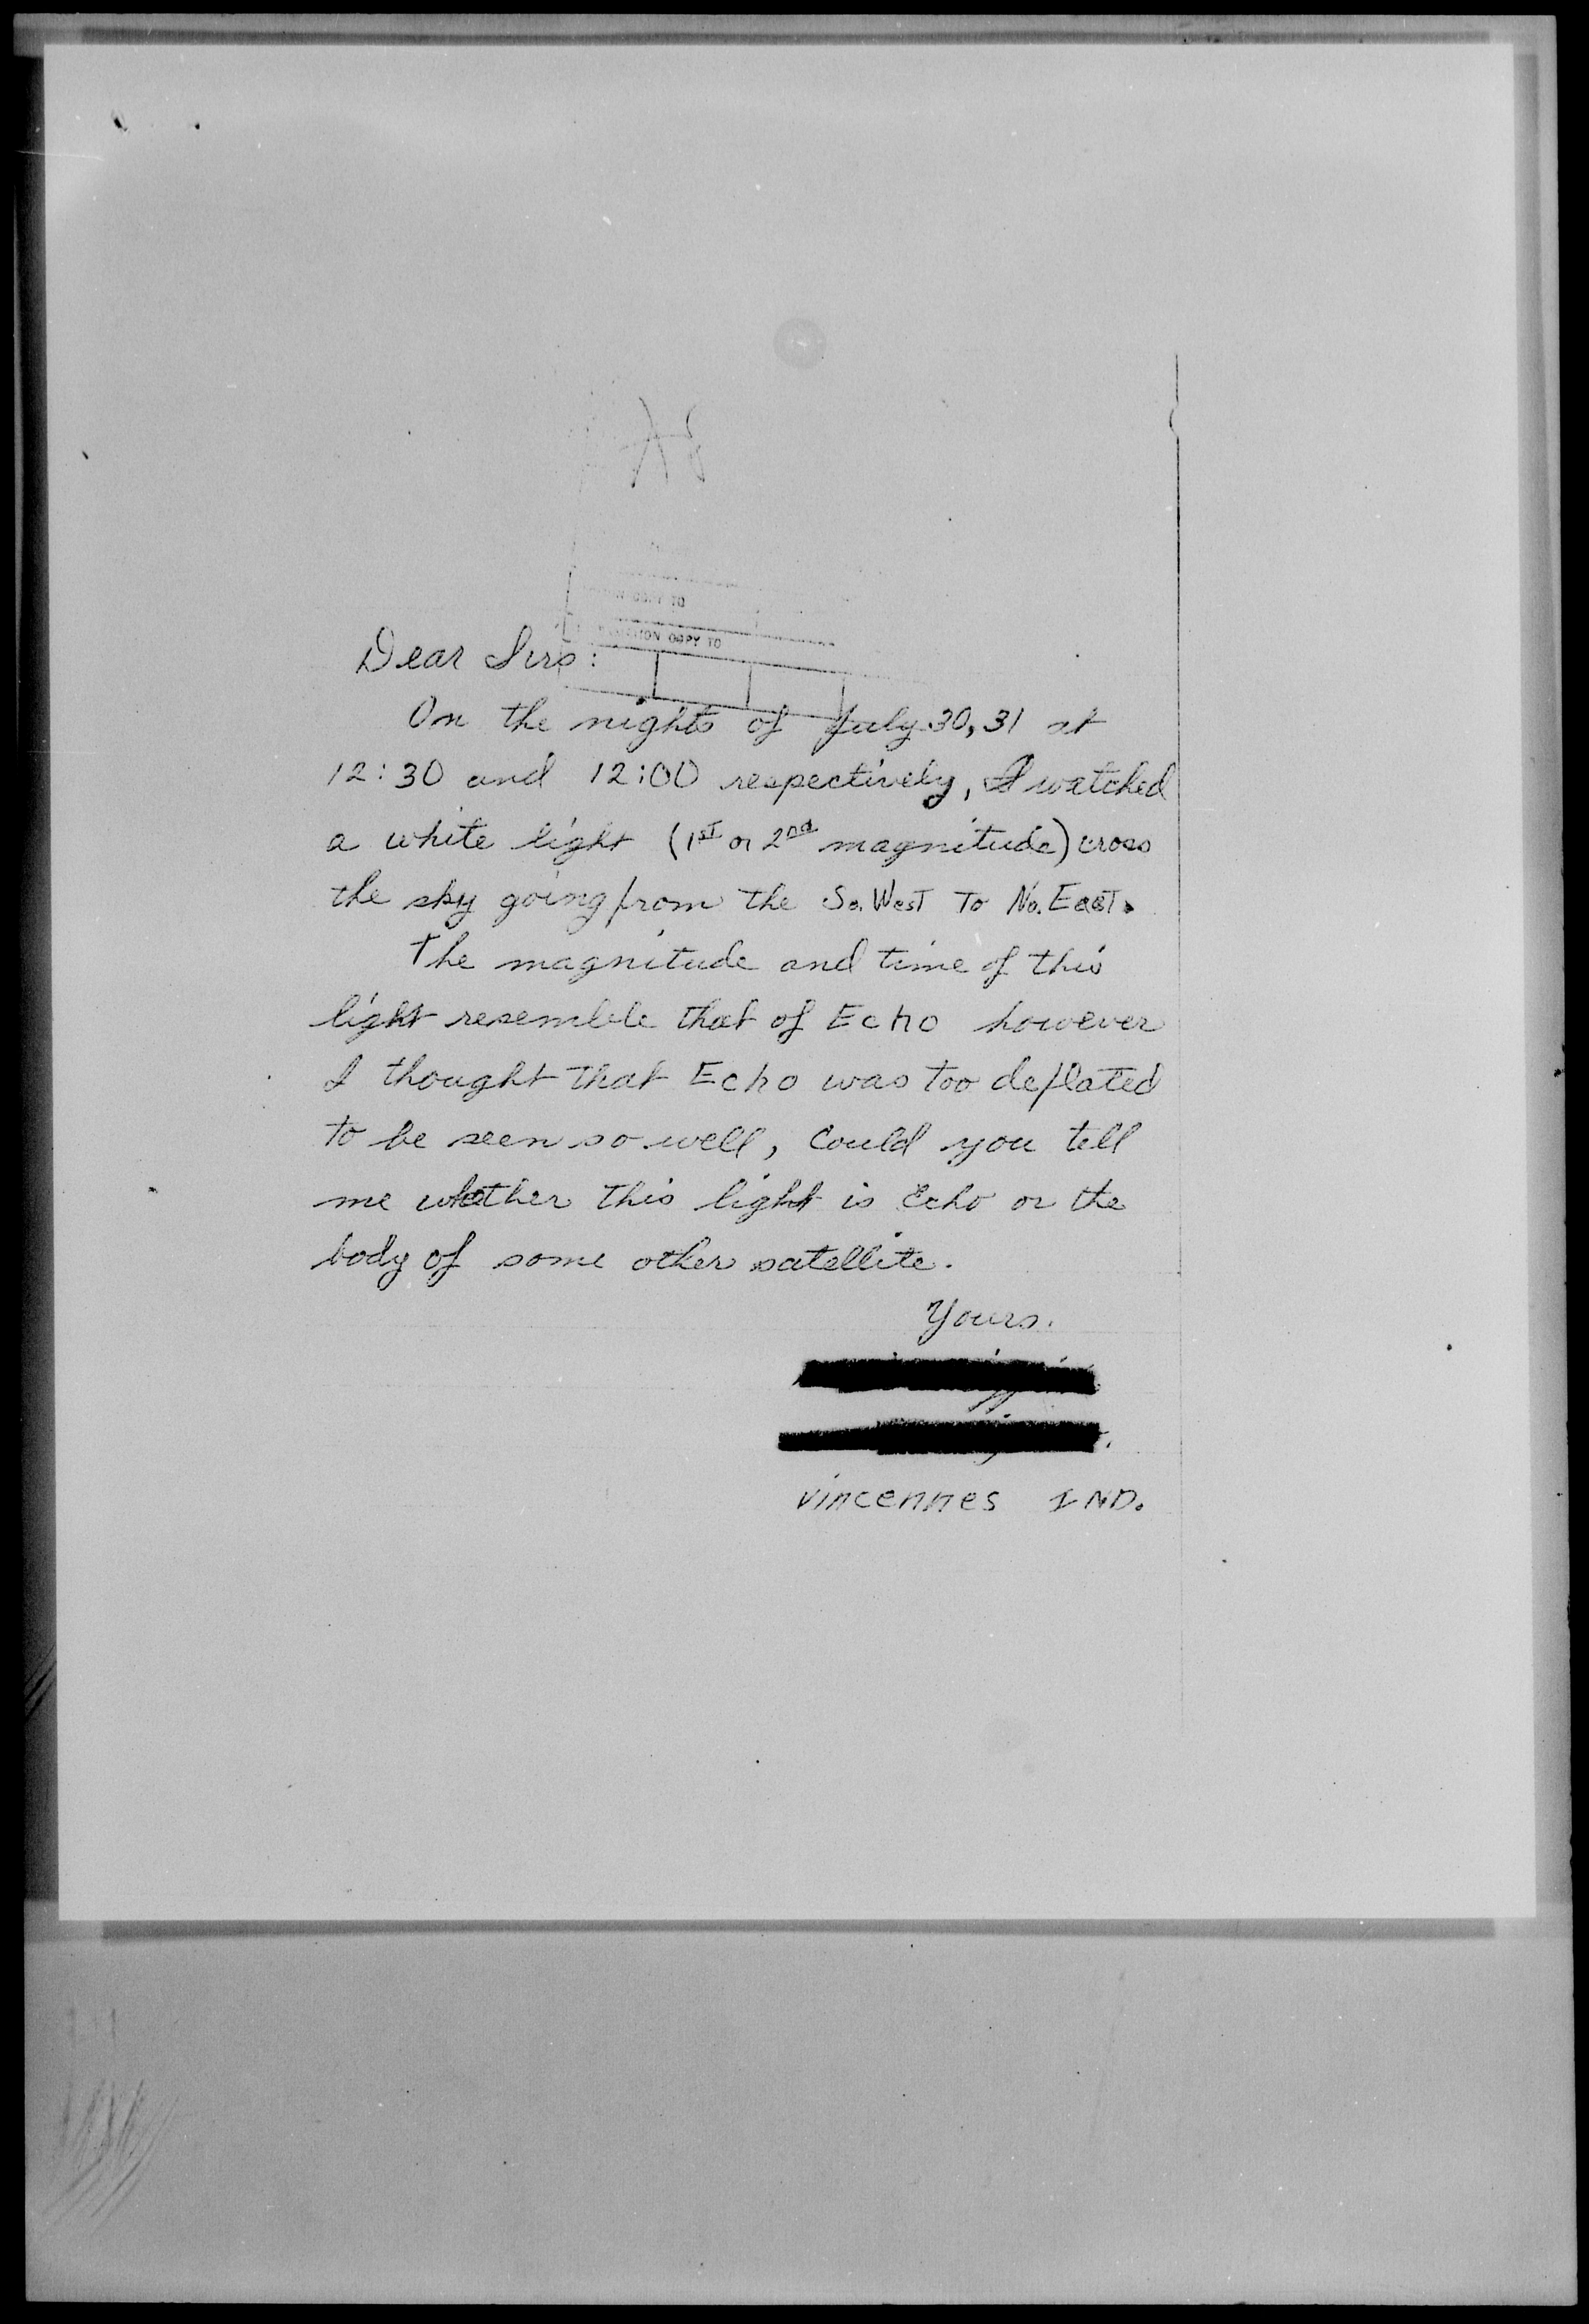 COPY TO
COPY TO
Dear Sirs:
On the nights of July 30, 31 at
12:30 and 12:00 respectively, I watched
a white light (1st or 2nd magnitude) cross
the sky going from the So. West To No. East.
The magnitude and time of this
light resemble that of Echo however
I thought that Echo was too deflated
to be seen so well, Could you tell
me whether this light is Echo or the
body of some other satellite.
Yours.
Vincennes IND.